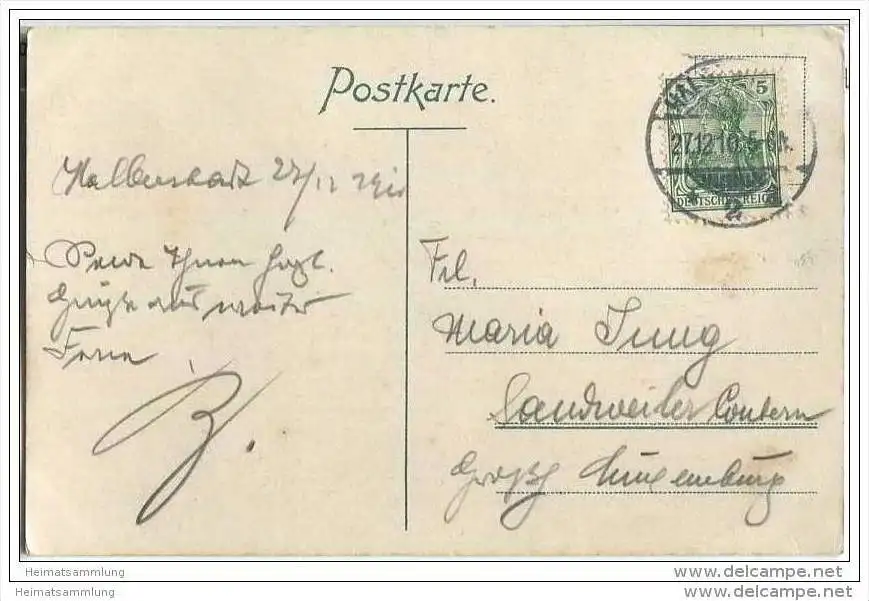 Postkarte.
5
27.12.10.5-6N.
DEUTSCHES REICH
2
Halberstadt 27/12 1910
Sende Ihnen
Grüße aus weiter
Ferne
B.
Frl.
Maria Jung
Sandweiler Contern
Großh Luxemburg
Heimatsammlung
Heimatsammlung
www.delcampe.net
www.delcampe.net